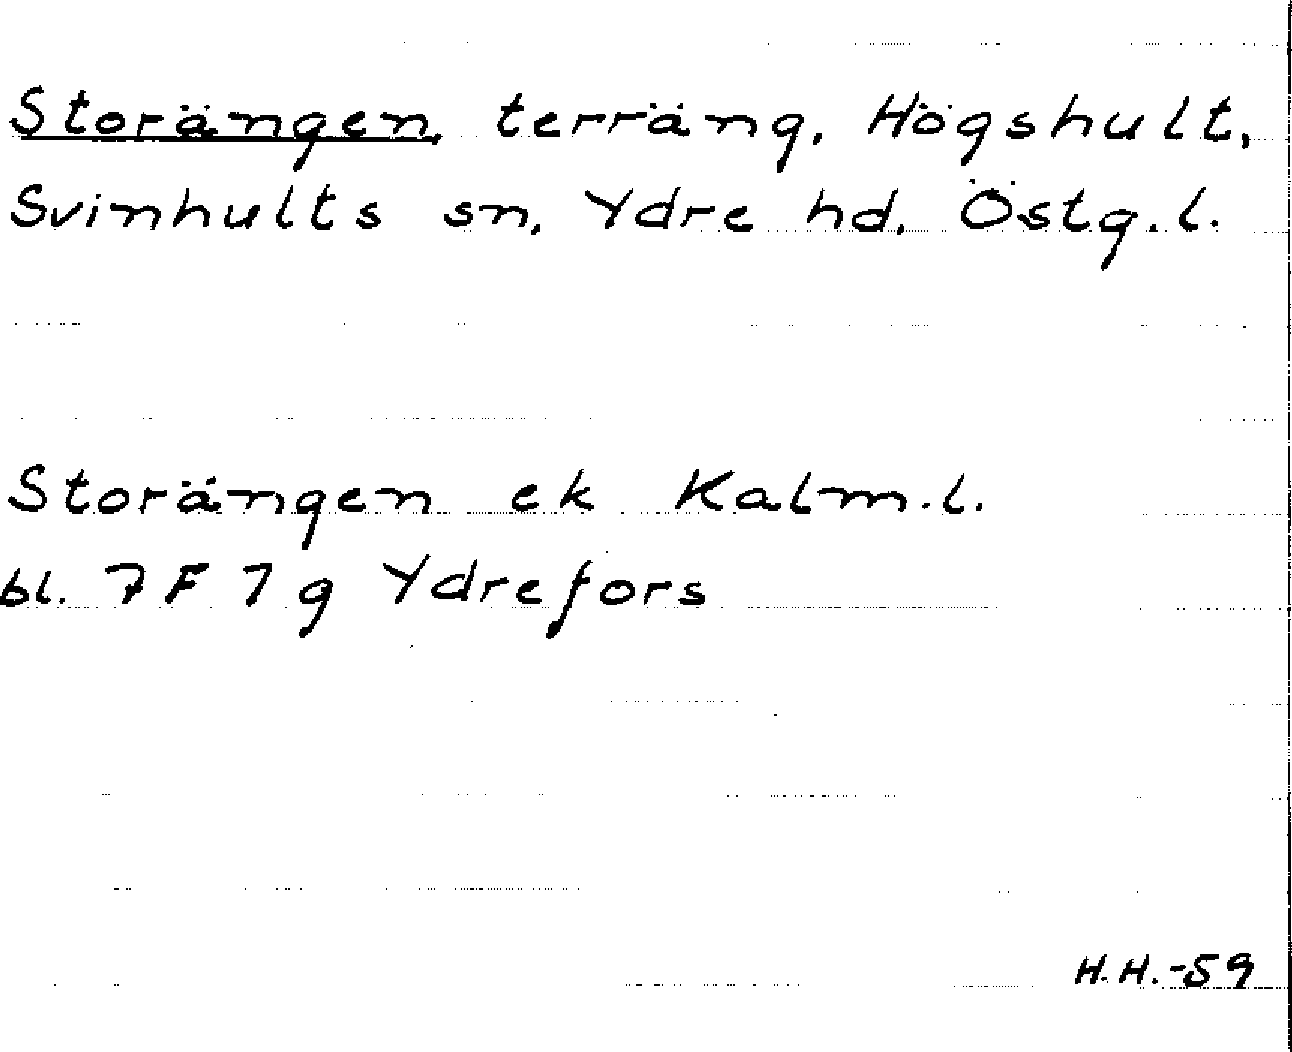 Storängen, terräng, Högshult,
Svinhults sn, Ydre hd, Östg.l.
Storängen ek Kalm.l.
bl. 7F 7g Ydrefors
H.H.-59